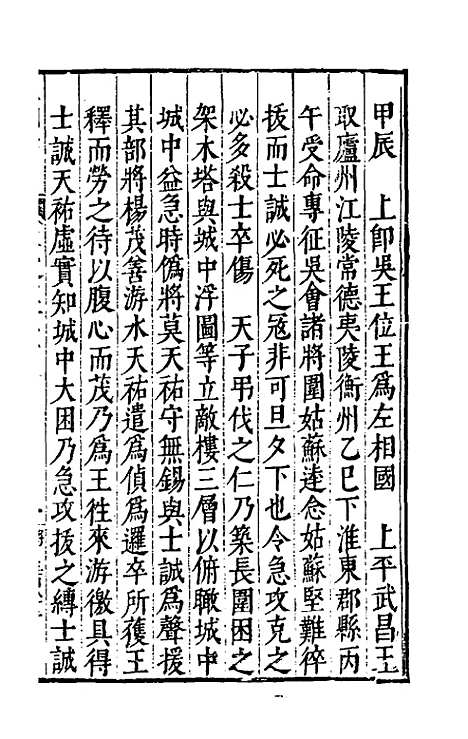 甲辰　上卽吳王位王爲左相國　上平武昌王
取廬州江陵常德夷陵衡州乙巳下淮東郡縣丙
午受命專征吳會諸將圍姑蘇逵念姑蘇堅難猝
拔而士誠必死之寇非可旦夕下也令急攻克之
必多殺士卒傷　天子弔伐之仁乃築長圍困之
架木塔與城中浮圖等立敵樓三層以俯瞰城中
城中益急時僞將莫天祐守無錫與士誠爲聲援
其部將楊茂善游水天祐遣爲偵爲邏卒所獲王
釋而勞之待以腹心而茂乃爲王徃來游徼具得
士誠天祐虛實知城中大困乃急攻拔之縳士誠